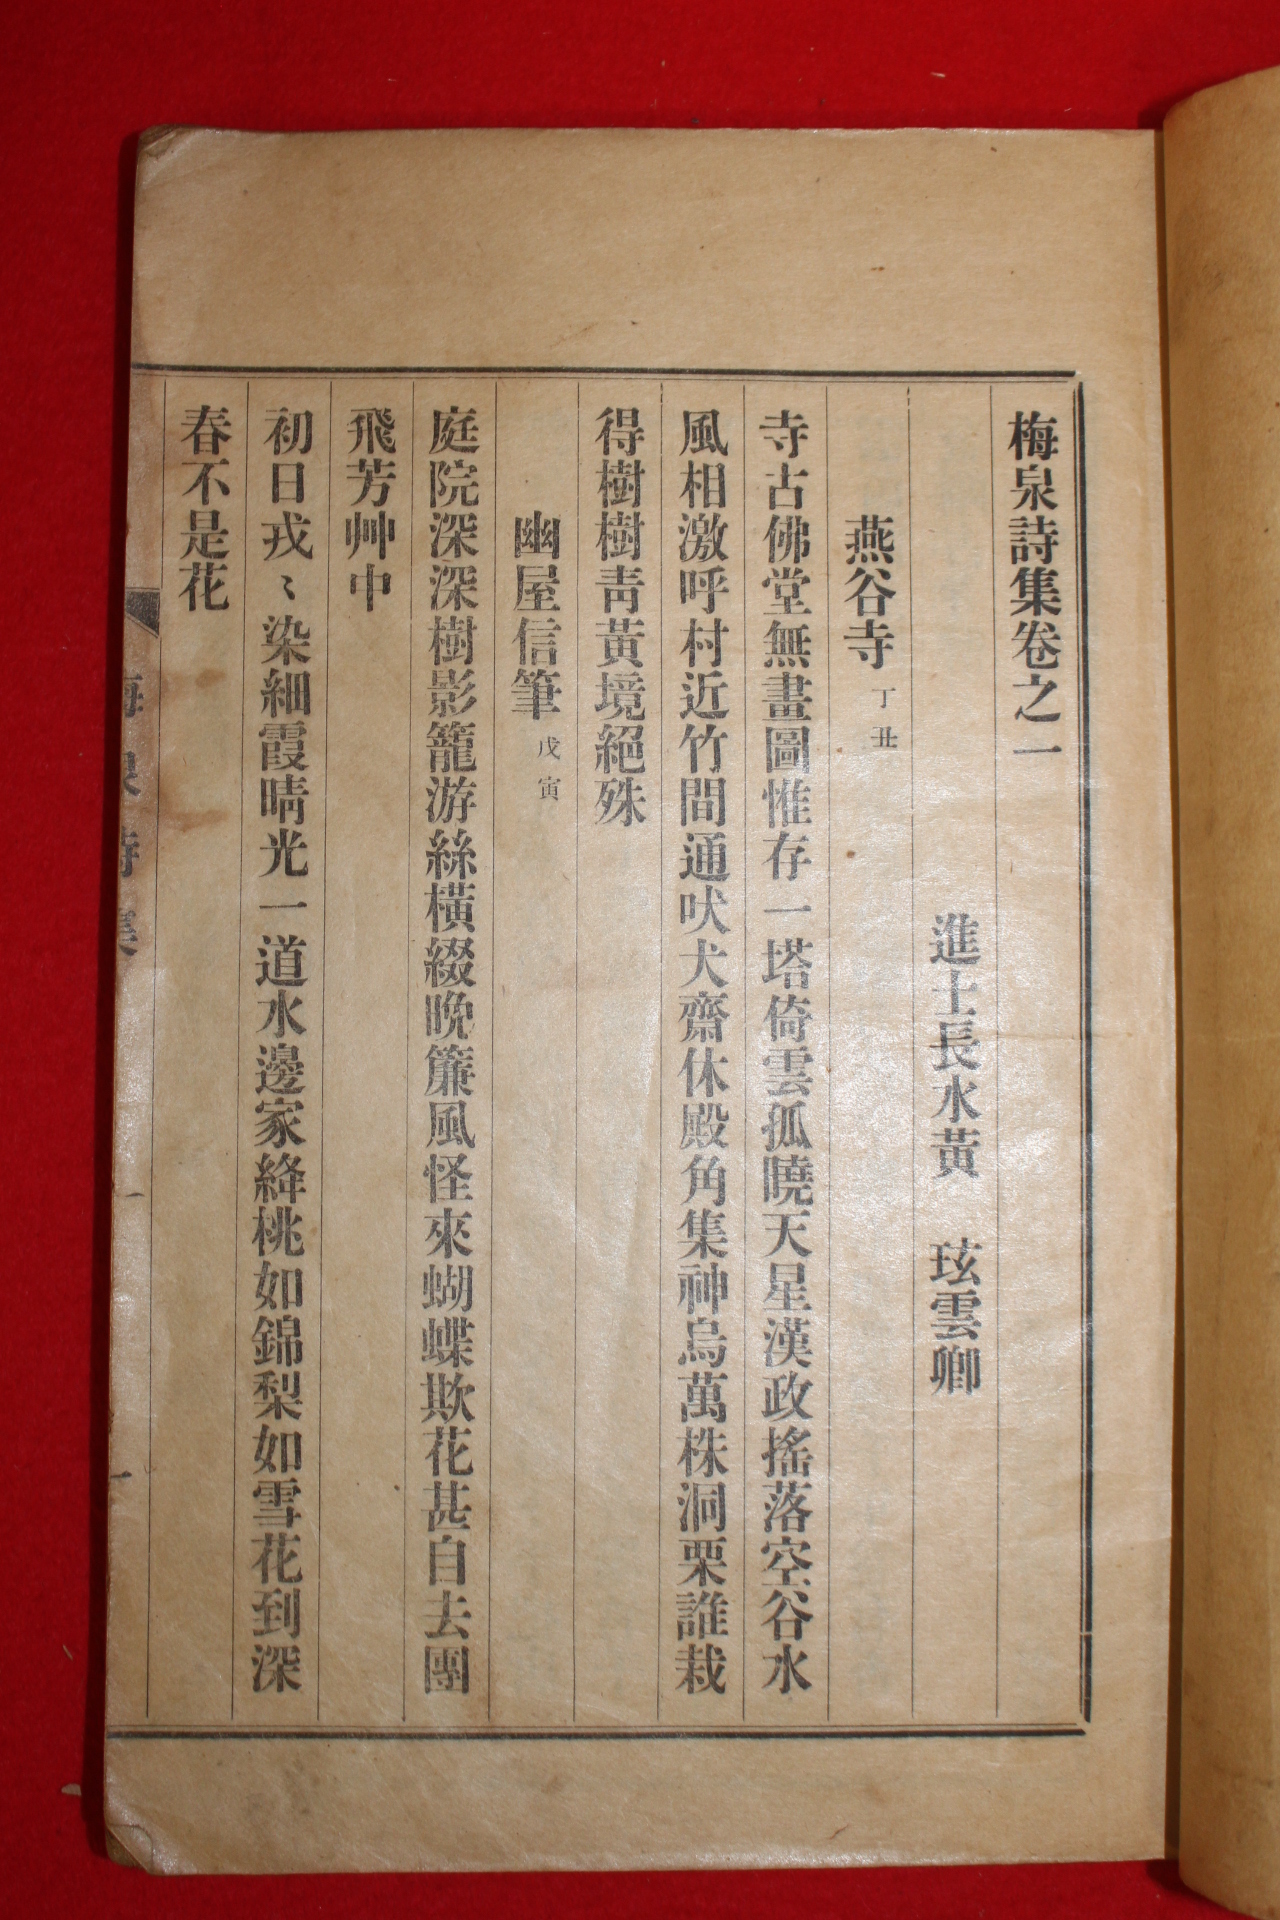 梅泉詩集卷之一
進士長水黃　玹雲卿
燕谷寺 丁丑
寺古佛堂無畫圖惟存一塔倚雲孤曉天星漢政搖落空谷水
風相激呼村近竹間通吠犬齋休殿角集神烏萬株洞栗誰栽
得樹樹靑黃境絕殊
幽屋信筆 戊寅
庭院深深樹影籠游絲橫綴晩簾風怪來蝴蝶欺花甚自去團
飛芳艸中
初日戎〻染細霞晴光一道水邊家絳桃如錦梨如雪花到深
春不是花
梅泉詩集
一